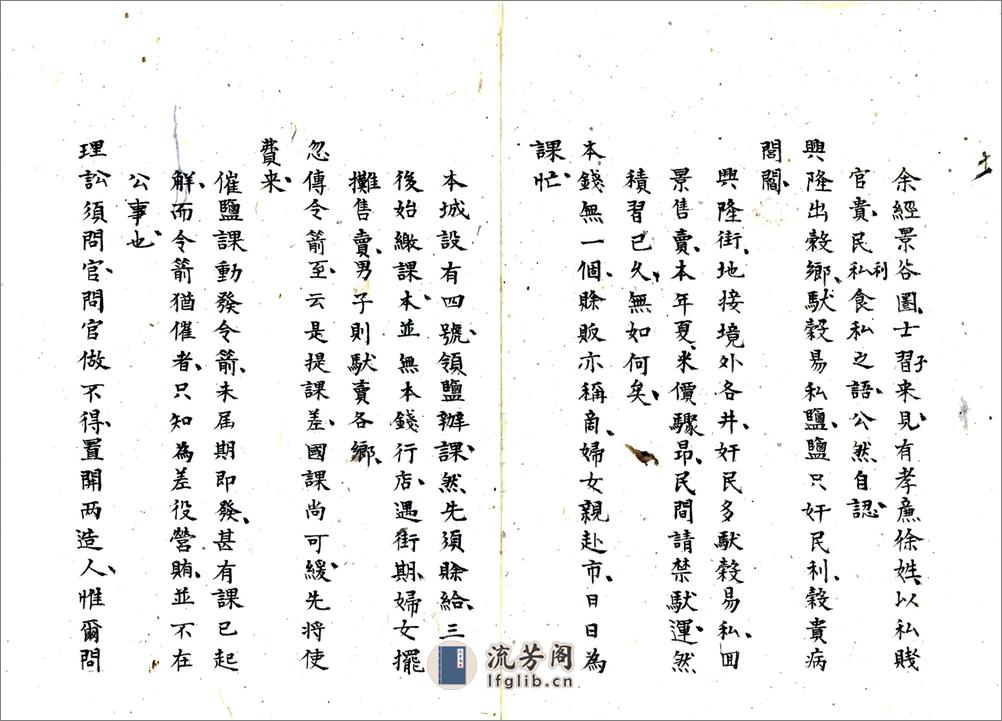 余經景谷圈、士習子来見、有孝廉徐姓、以私賤
官貴、民私利食私之語、公然自認、
興隆出穀鄉、馱穀易私鹽、鹽只奸民利、穀貴病
閭閻、
興隆街、地接境外各井、奸民多馱穀易私、回
景售賣、本年夏、米價驟昂、民間請禁馱運、然
積習已久、無如何矣、
本錢無一個、賖販亦稱商、婦女親赴市、日日為
課忙、
本城設有四號、領鹽辦課、然先須賖給、三
後始繳課本、並無本錢行店、遇街期、婦女擺
攤售賣、男子則馱賣各鄉、
忽傳令箭至、云是提課差、國課尚可緩、先將使
費来、
催鹽課動發令箭、未届期即發、甚有課已起
解、而令箭猶催者、只知為差役營賄、並不在
公事也、
理訟須問官、問官做不得、置開两造人、惟爾問
流芳阁
lfglib.cn